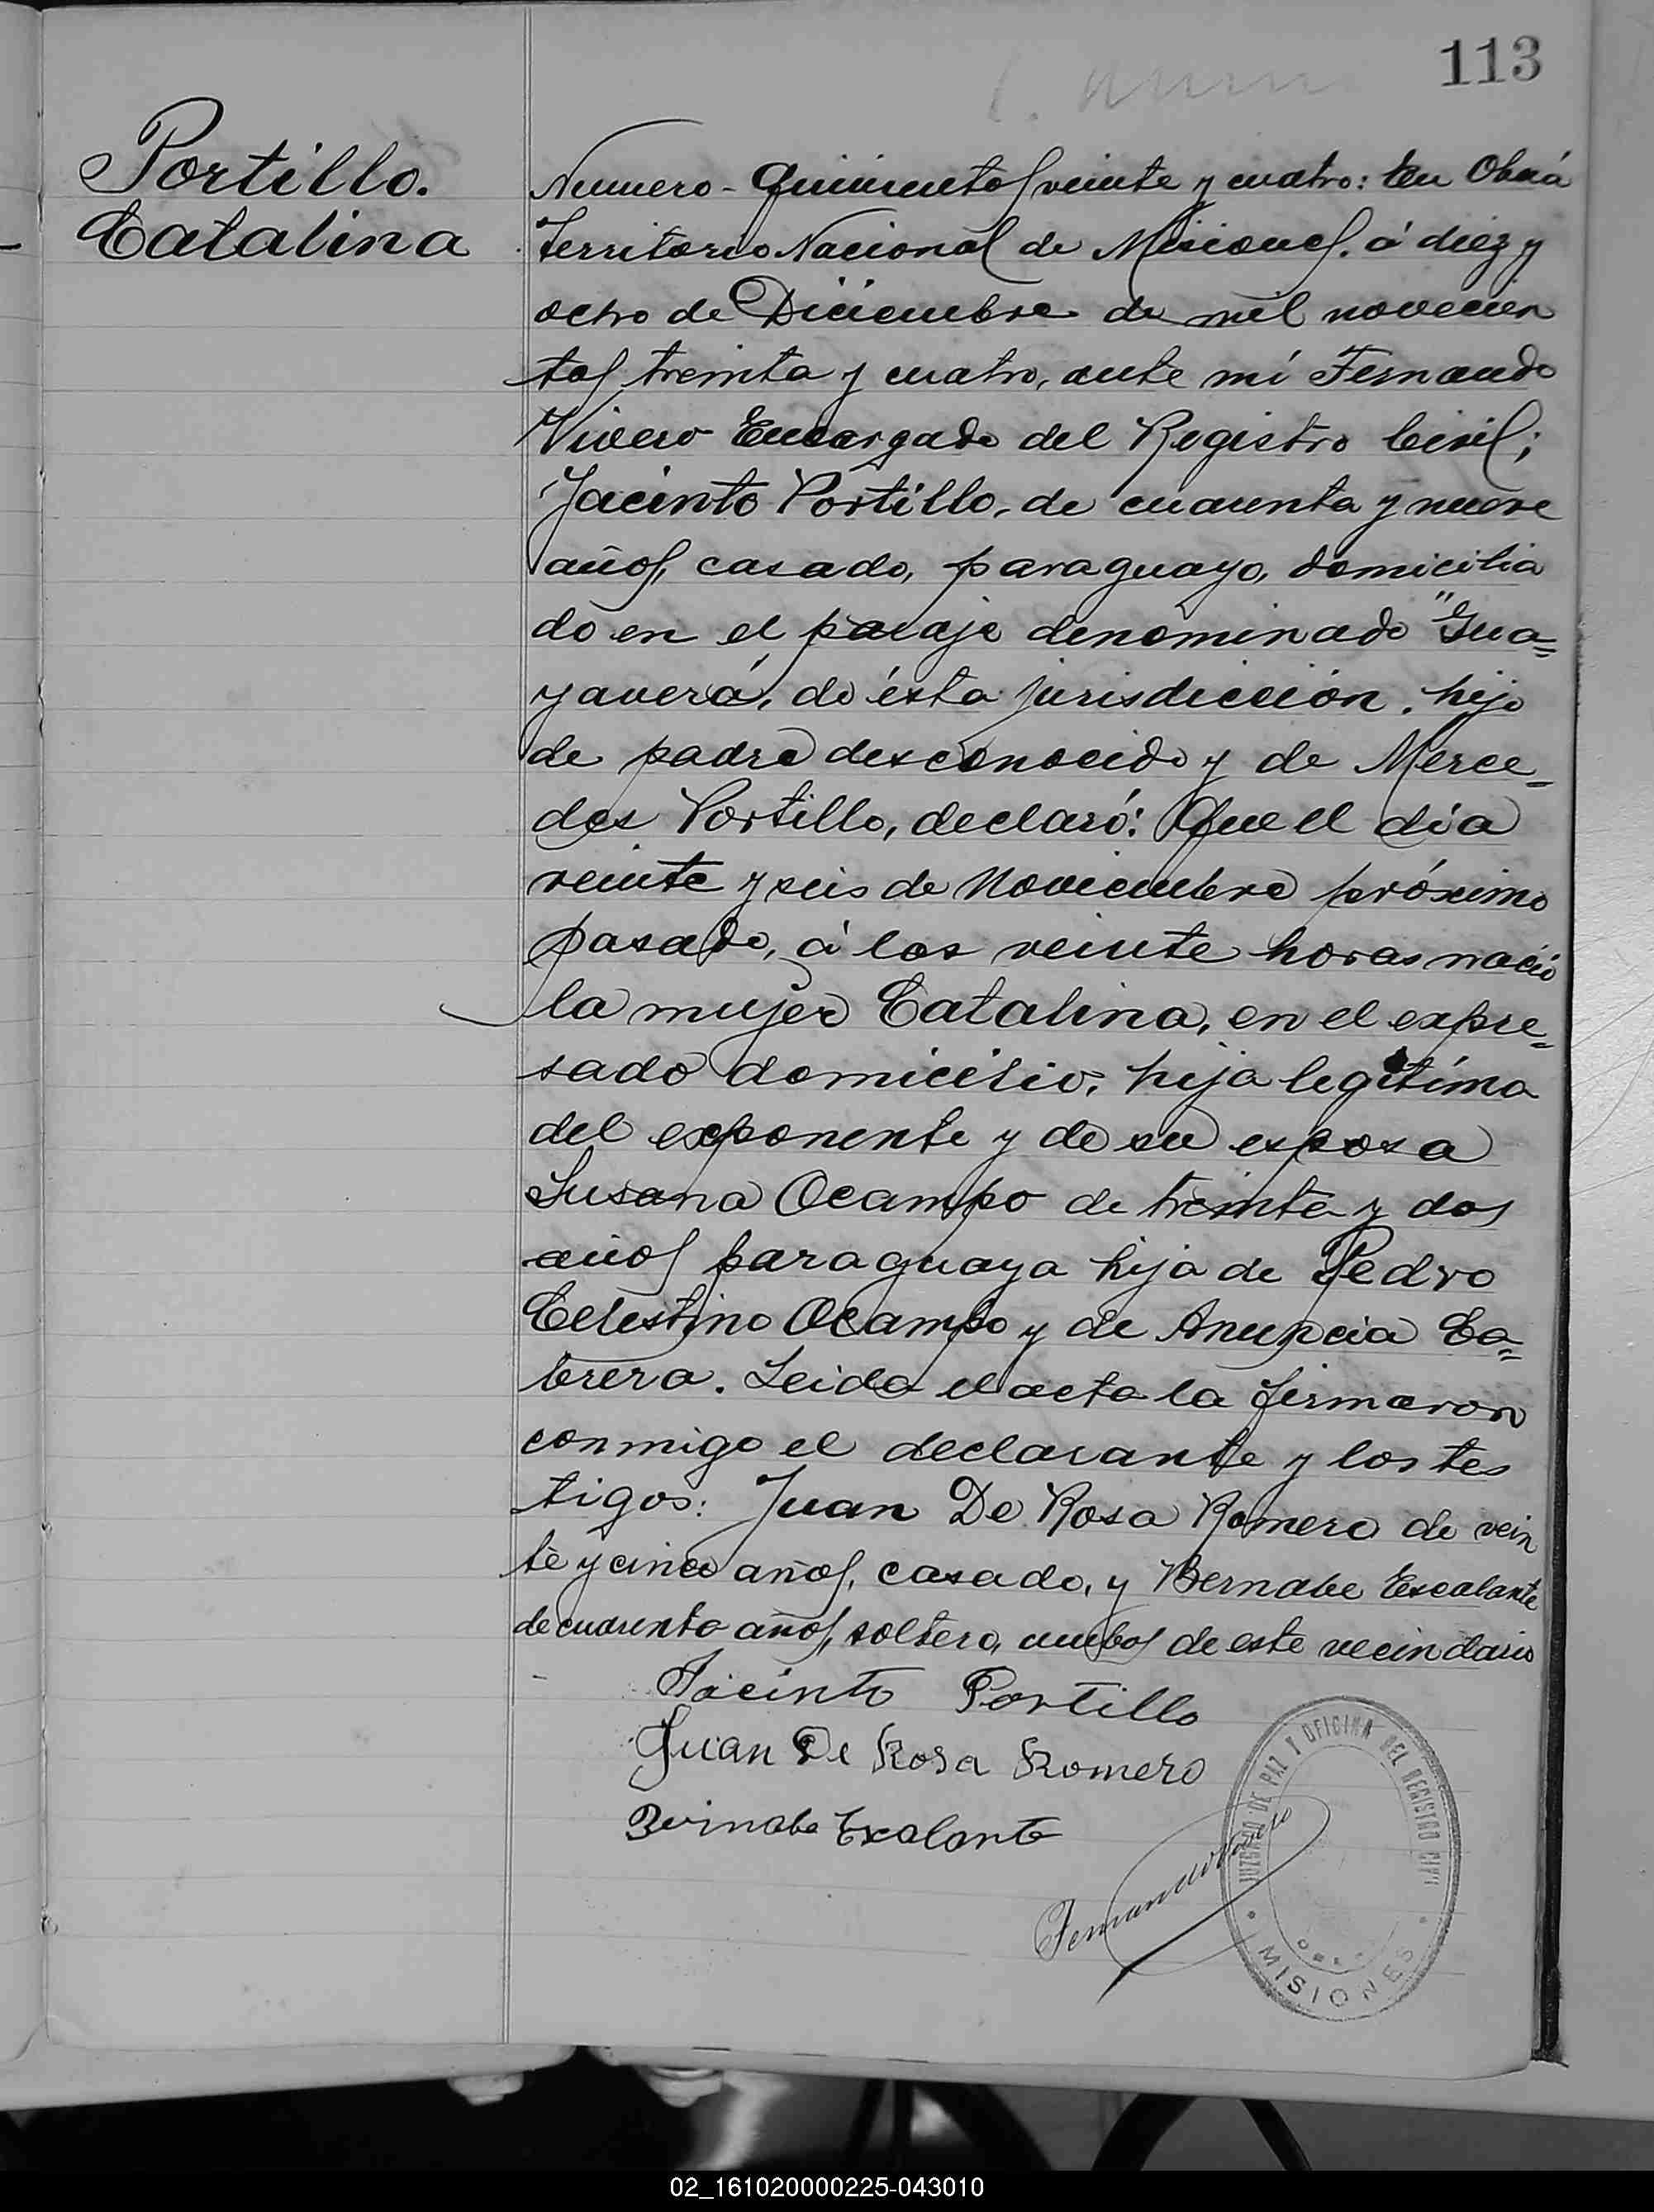 113
Portillo.
Catalina
Numero - Quinientos veinte y cuatro: En Oberá
Territorio Nacional de Misiones. á diez y
ocho de Diciembre de mil novecien
tos treinta y cuatro, ante mí Fernando
Vivero Encargado del Registro Civil;
Jacinto Portillo, de cuarenta y nueve
años, casado, paraguayo, domicilia
do en el paraje denominado "Gua=
yaverá, de ésta jurisdicción, hijo
de padre desconocido y de Merce=
des Portillo, declaró: Que el día
veinte y seis de Noviembre próximo
pasado, á las veinte horas nació
la mujer Catalina, en el expre=
sado domicilio, hija legítima
del exponente y de su esposa
Susana Ocampo de treinta y dos
años paraguaya hija de Pedro
Celestino Ocampo y de Anuncia Ca=
brera. Leida el acta la firmaron
conmigo el declarante y los tes
tigos: Juan De Rosa Romero de vein
te y cinco años, casado, y Bernabe Escalante
de cuarenta años, soltero, ambos de este vecindario
Jacinto Portillo
Juan De Rosa Romero
Bernabe Escalante
Fernando Vivero
JUZGADO DE PAZ Y OFICINA DEL REGISTRO CIVIL
MISIONES
02_161020000225-043010